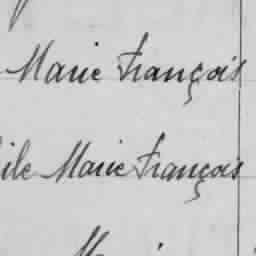 Marie François
ile Marie François